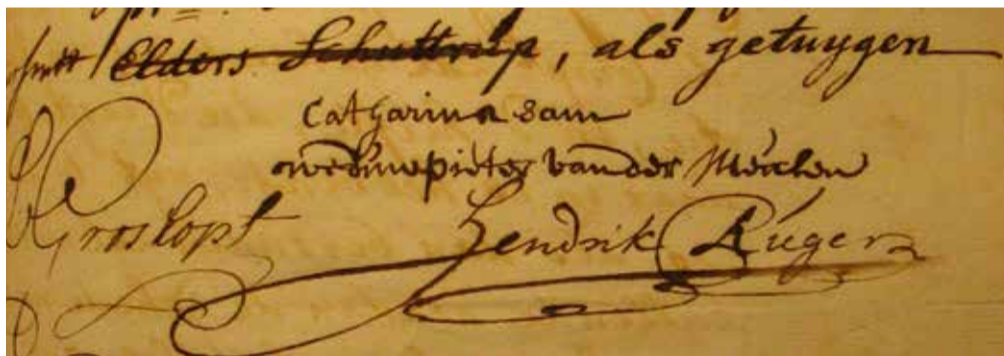 Elders Schuttrup, als getuygen
Catharina sam
wedúwe pieter van der Meulen
Groskopf
Hendrik Rúger